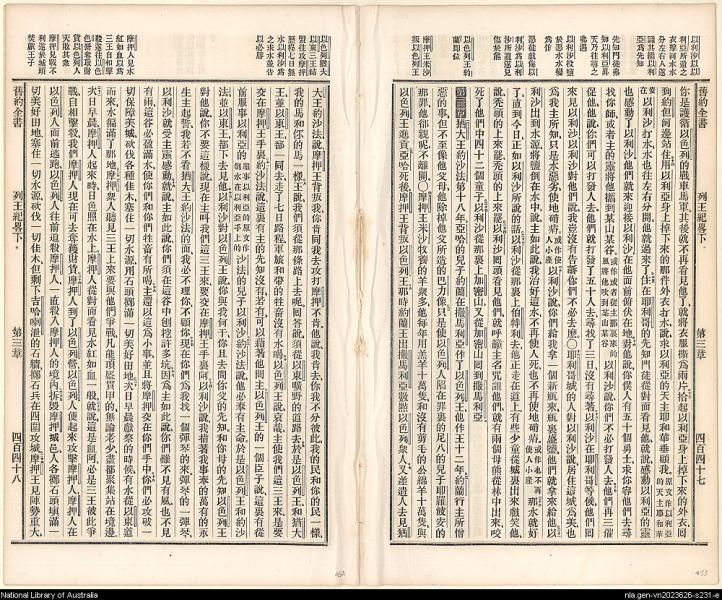 以利沙以以
利亞所遺之
衣擊約但水
分左右人遂
識其繼以利
亞為先知
先知門徒弗
知以利亞昇
天乃往尋之
弗遇
以利沙投鹽
於惡水水變
為美
童譏以利沙
以色列王約
蘭即位
摩押王米沙
叛以色列王
舊約全書
列王紀畧下
第三章
四百四十七
你是護衛以色列的戰車馬軍其後就不再看見他了就將衣服撕為兩片拾起以利亞身上掉下來的外衣囘
到約但河邊站住用以利亞身上掉下來的那件外衣打水說求以利亞的天主耶和華垂顧我
以利沙打水水也往左右分開他就過來了住在耶利哥的先知門徒從對面看見他就說感動以利亞的靈
也感動了以利沙他們就來迎接以利沙在他面前俯伏在地對他說你僕人有五十個勇士求你容他們去尋
找你師或者主的靈將他攜到某山某谷
以利沙說你們不必打發人去他們再三催
促他他說你們可以打發人去他們就打發了五十人去尋找了三日沒有尋著以利沙在耶利哥等候他們囘
來見以利沙以利沙對他們說我豈沒有告訴你們不必去麼○耶利哥城的人對以利沙說居住這城為美也
為我主所知只是水惡劣使地磽瘠人小產以利沙說你們給我拿一個新瓶來瓶裏盛鹽他們就拿來給他以
利沙出到水源將鹽倒在水中說主如此說我治好這水不再使人死也不再使地磽瘠
那水就好
了直到今日正如以利沙所說的話以利沙從那裏上伯特利去他正走在道上有些少童從城裏出來戲笑他
說禿頭的上來罷禿頭的上來罷以利沙囘頭看見他們就呼籲主名咒詛他們就有兩個母熊從林中出來咬
死了他們中四十二個童子以利沙從那裏上加密山又從加密山囘到撒馬利亞
第三章猶大王約沙法第十八年亞哈的兒子約蘭在撒馬利亞作了以色列王他作王十二年約蘭行主所憎
惡的事但不至像他父母他除掉他父所造的巴力像只是使以色列人陷在罪裏的尼八的兒子耶羅波安的
那罪他卻親昵不離開○摩押王米沙牧養的羊羣多他每年用羔羊十萬隻和沒有剪毛的公綿羊十萬隻與
以色列王進貢亞哈死後摩押王背叛以色列王那時約蘭王出撒馬利亞數點以色列眾人又差遣人去見猶
以色列猶大
以東三王結
盟往攻摩押
摩押人見水
紅如血以為
三王自相擊
殺
摩押見戰不
利遂於城頭
焚厥王子
舊約全書
列王紀畧下
第三章
四百四十八
大王約沙法說摩押王背叛我你肯同我去攻打摩押不肯他說我肯去你我不分彼此我的民和你的民一樣
我的馬和你的馬一樣王說我們須從那條路上去呢囘答說須從以東曠野的道路去於是以色列王和猶大
王並以東王都一同去走了七日路程軍旅和帶的牲畜沒有水喝以色列王說哀哉主使我們這三王來是要
交在摩押王手裏約沙法說這裏有主的先知沒有若有可以藉著他問主以色列王的一個臣子說這裏有從
前服事以利亞的
沙法的兒子以利沙約沙法說他必奉有主命於是以色列王和約沙
法並以東王都下去見他以利沙對以色列王說你與我何干你且去問你父的先知和你母的先知以色列王
對他說你不要這樣說現在主叫我們這三王來要交在摩押王手裏以利沙說我指著我事奉的萬有的永
生主起誓我若不看猶大王約沙法的面我必不理你不顧你現在你們為我找一個彈琴的來彈琴的一彈琴
以利沙就受主靈感動就說主如此說你們須在這谷中刨挖許多坑因為主如此說你們雖不見有風也不見
有雨這谷必盈滿水使你們和你們牲畜有所喝主還以這為小事並且將摩押交在你們手中你們必攻破一
切保障美城砍伐各種佳木塞住一切水源用石頭擲滿一切美好田地次日早晨獻祭的時候有水從以東道
而來水徧滿了那地摩押眾人聽見三王上來要與他們爭戰凡能頂盔貫甲的無論老少盡都聚集站在境邊
次日早晨摩押人起來時日色照在水上摩押人從對面看見水紅如血一般就說這是血阿必是三王彼此爭
戰自相擊殺我們摩押人現在可去奪擄財貨摩押人到了以色列營以色列人便起來攻擊摩押人摩押人在
以色列人面前逃跑以色列人往前追殺摩押人一直殺入摩押人的境內拆毀摩押城邑人各擲石頭填滿一
切美好田地塞住一切水源砍伐一切佳木但剩下吉哈喇設的石牆擲石兵在四圍攻城摩押王見陣勢重大
National Library of Australia
nla.gen-vn2023626-s231-e